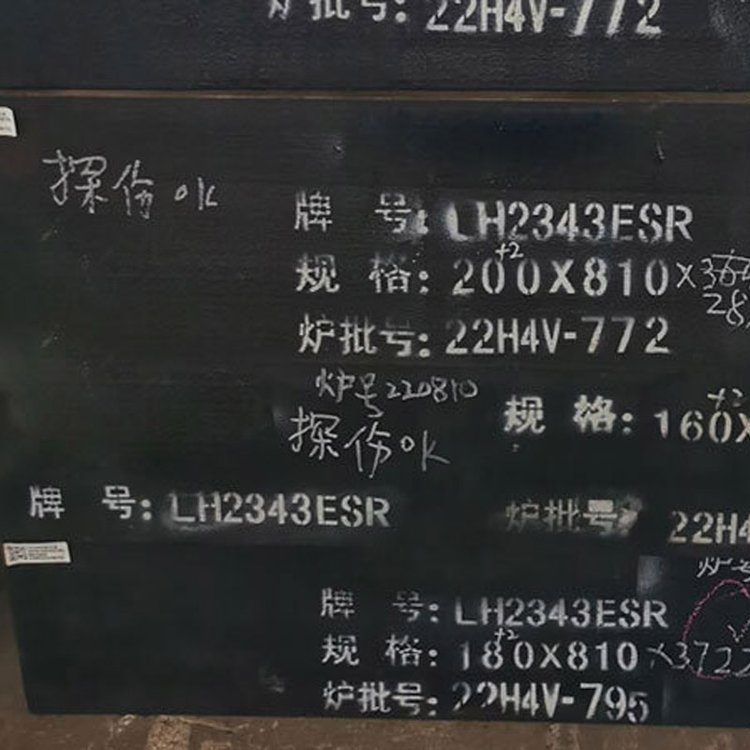 炉批号:22H4V-772
探伤OK
牌 号:LH2343ESR
规 格:200+2X810X
28
炉批号:22H4V-772
炉号220810
探伤OK
规 格:160+2X
牌 号:LH2343ESR
炉批号 22H4
炉号
牌 号:LH2343ESR
规 格:180+2X810X372
炉批号:22H4V-795